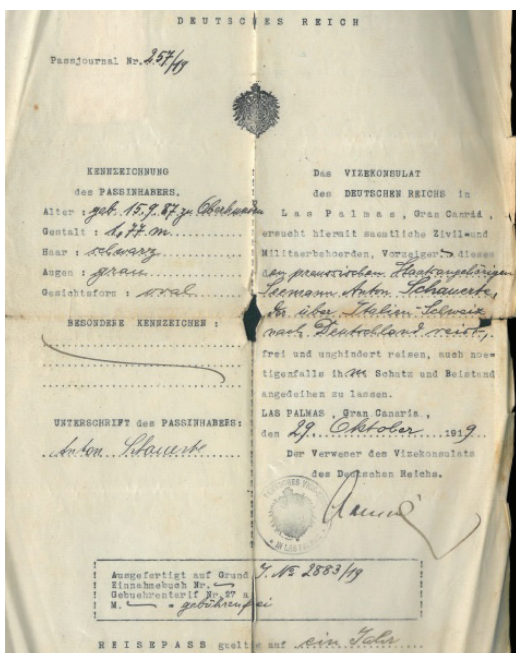 DEUTSCHES REICH
Passjournal Nr. 257/19
KENNZEICHNUNG
des PASSINHABERS.
Alter : geb. 15.9.87 zu Oberhunden
Gestalt : 1,77 m
Haar : schwarz
Augen : grau
Gesichtsform : oval
BESONDERE KENNZEICHEN :
UNTERSCHRIFT des PASSINHABERS:
Anton Schauerte
Das VIZEKONSULAT
des DEUTSCHEN REICHS in
Las Palmas, Gran Canria,
ersucht hiermit saemtliche Zivil=und
Militaerbehoerden, Vorzeiger dieses
den preussischen Staatsangehörigen
Seemann Anton Schauerte,
der über Italien Schweiz
nach Deutschland reist,
frei und unghindert reisen, auch noe=
tigenfalls ihm Schutz und Beistand
angedeihen zu lassen.
LAS PALMAS, Gran Canaria,
den 29. Oktober 1919.
Der Verweser des Vizekonsulats
des Deutschen Reichs.
DEUTSCHES
IN LAS PALMAS
Ausgefertigt auf Grund J. № 2883/19
Einnahmebuch Nr.
Gebuehrentarif Nr. 27 a
M. gebührenfrei
REISEPASS gueltig auf ein Jahr